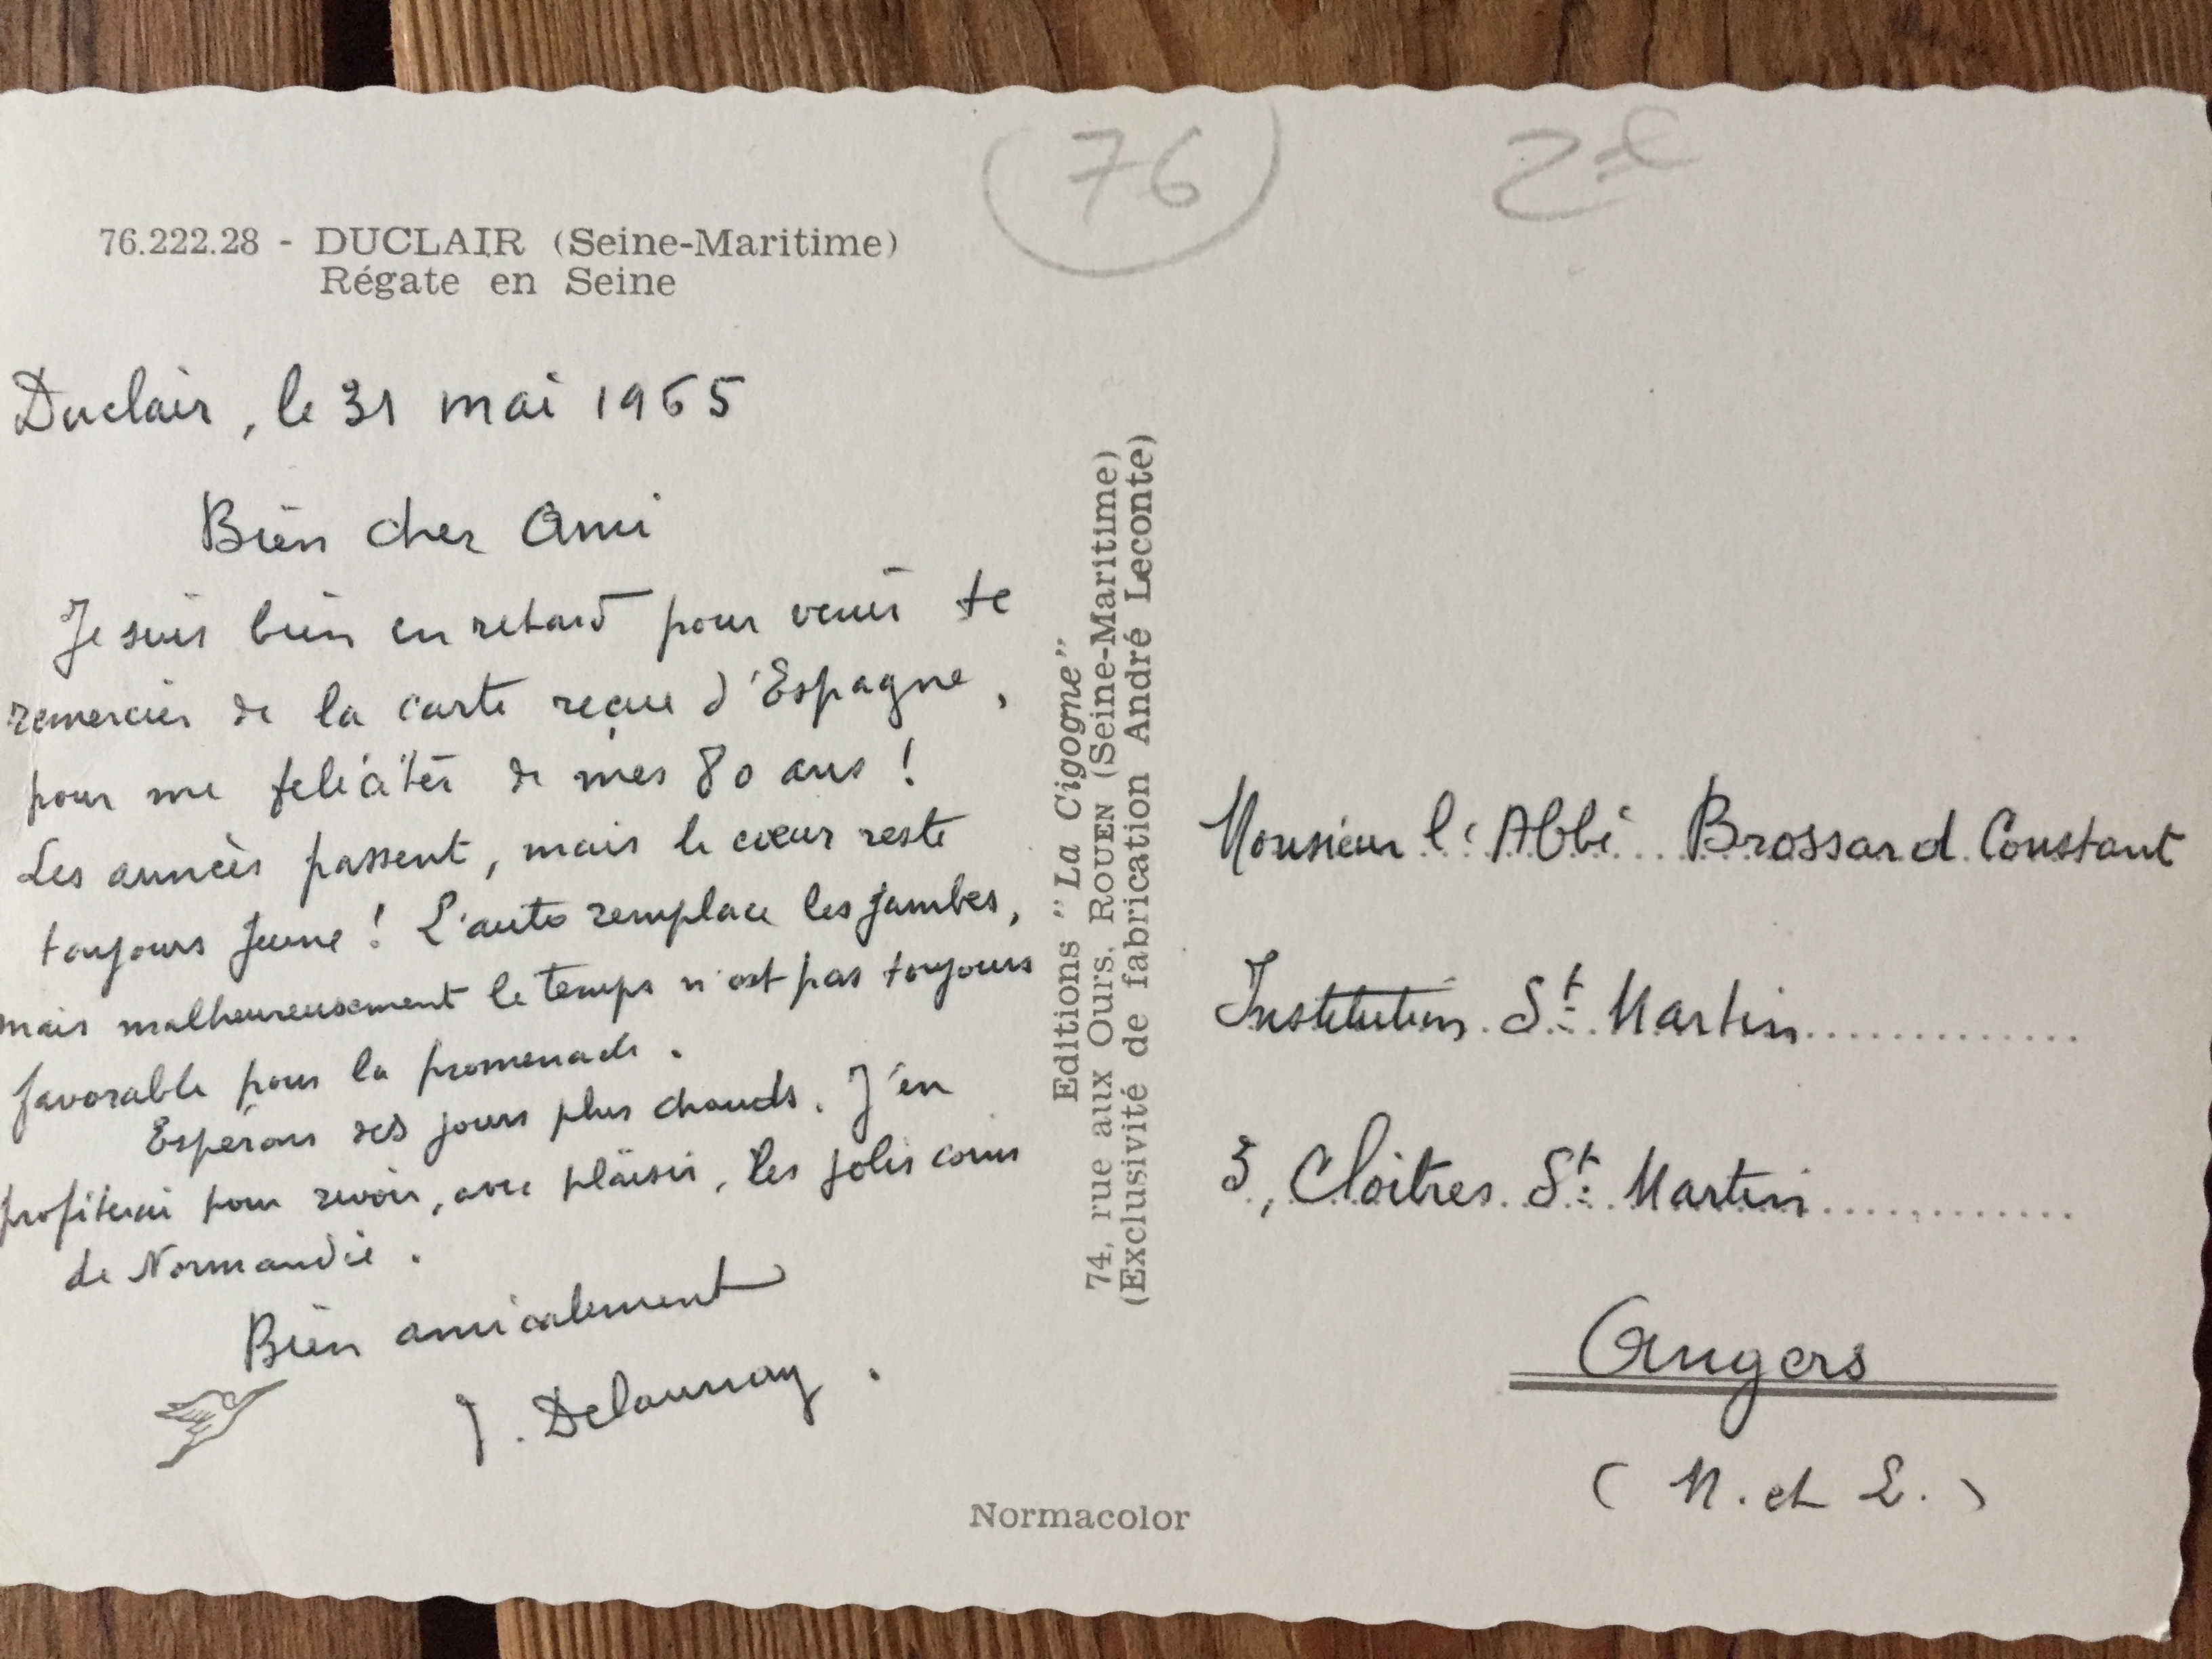 (76)
76.222.28 - DUCLAIR (Seine-Maritime)
Régate en Seine
Duclair, le 31 mai 1965
Bien cher Ami
Je suis bien en retard pour venir te
remercier de la carte reçue d'Espagne,
pour me féliciter de mes 80 ans !
Les années passent, mais le cœur reste
toujours jeune ! L'auto remplace les jambes,
mais malheureusement le temps n'est pas toujours
favorable pour la promenade.
Espérons des jours plus chauds. J'en
profiterai pour revoir, avec plaisir, les jolis coins
de Normandie.
Bien amicalement
J. Delaunay.
Editions "La Cigogne"
74, rue aux Ours, ROUEN (Seine-Maritime)
(Exclusivité de fabrication André Leconte)
Normacolor
Monsieur l'Abbé Brossard Constant
Institution St Martin
3, Cloitres St Martin
Angers
(M. et L.)